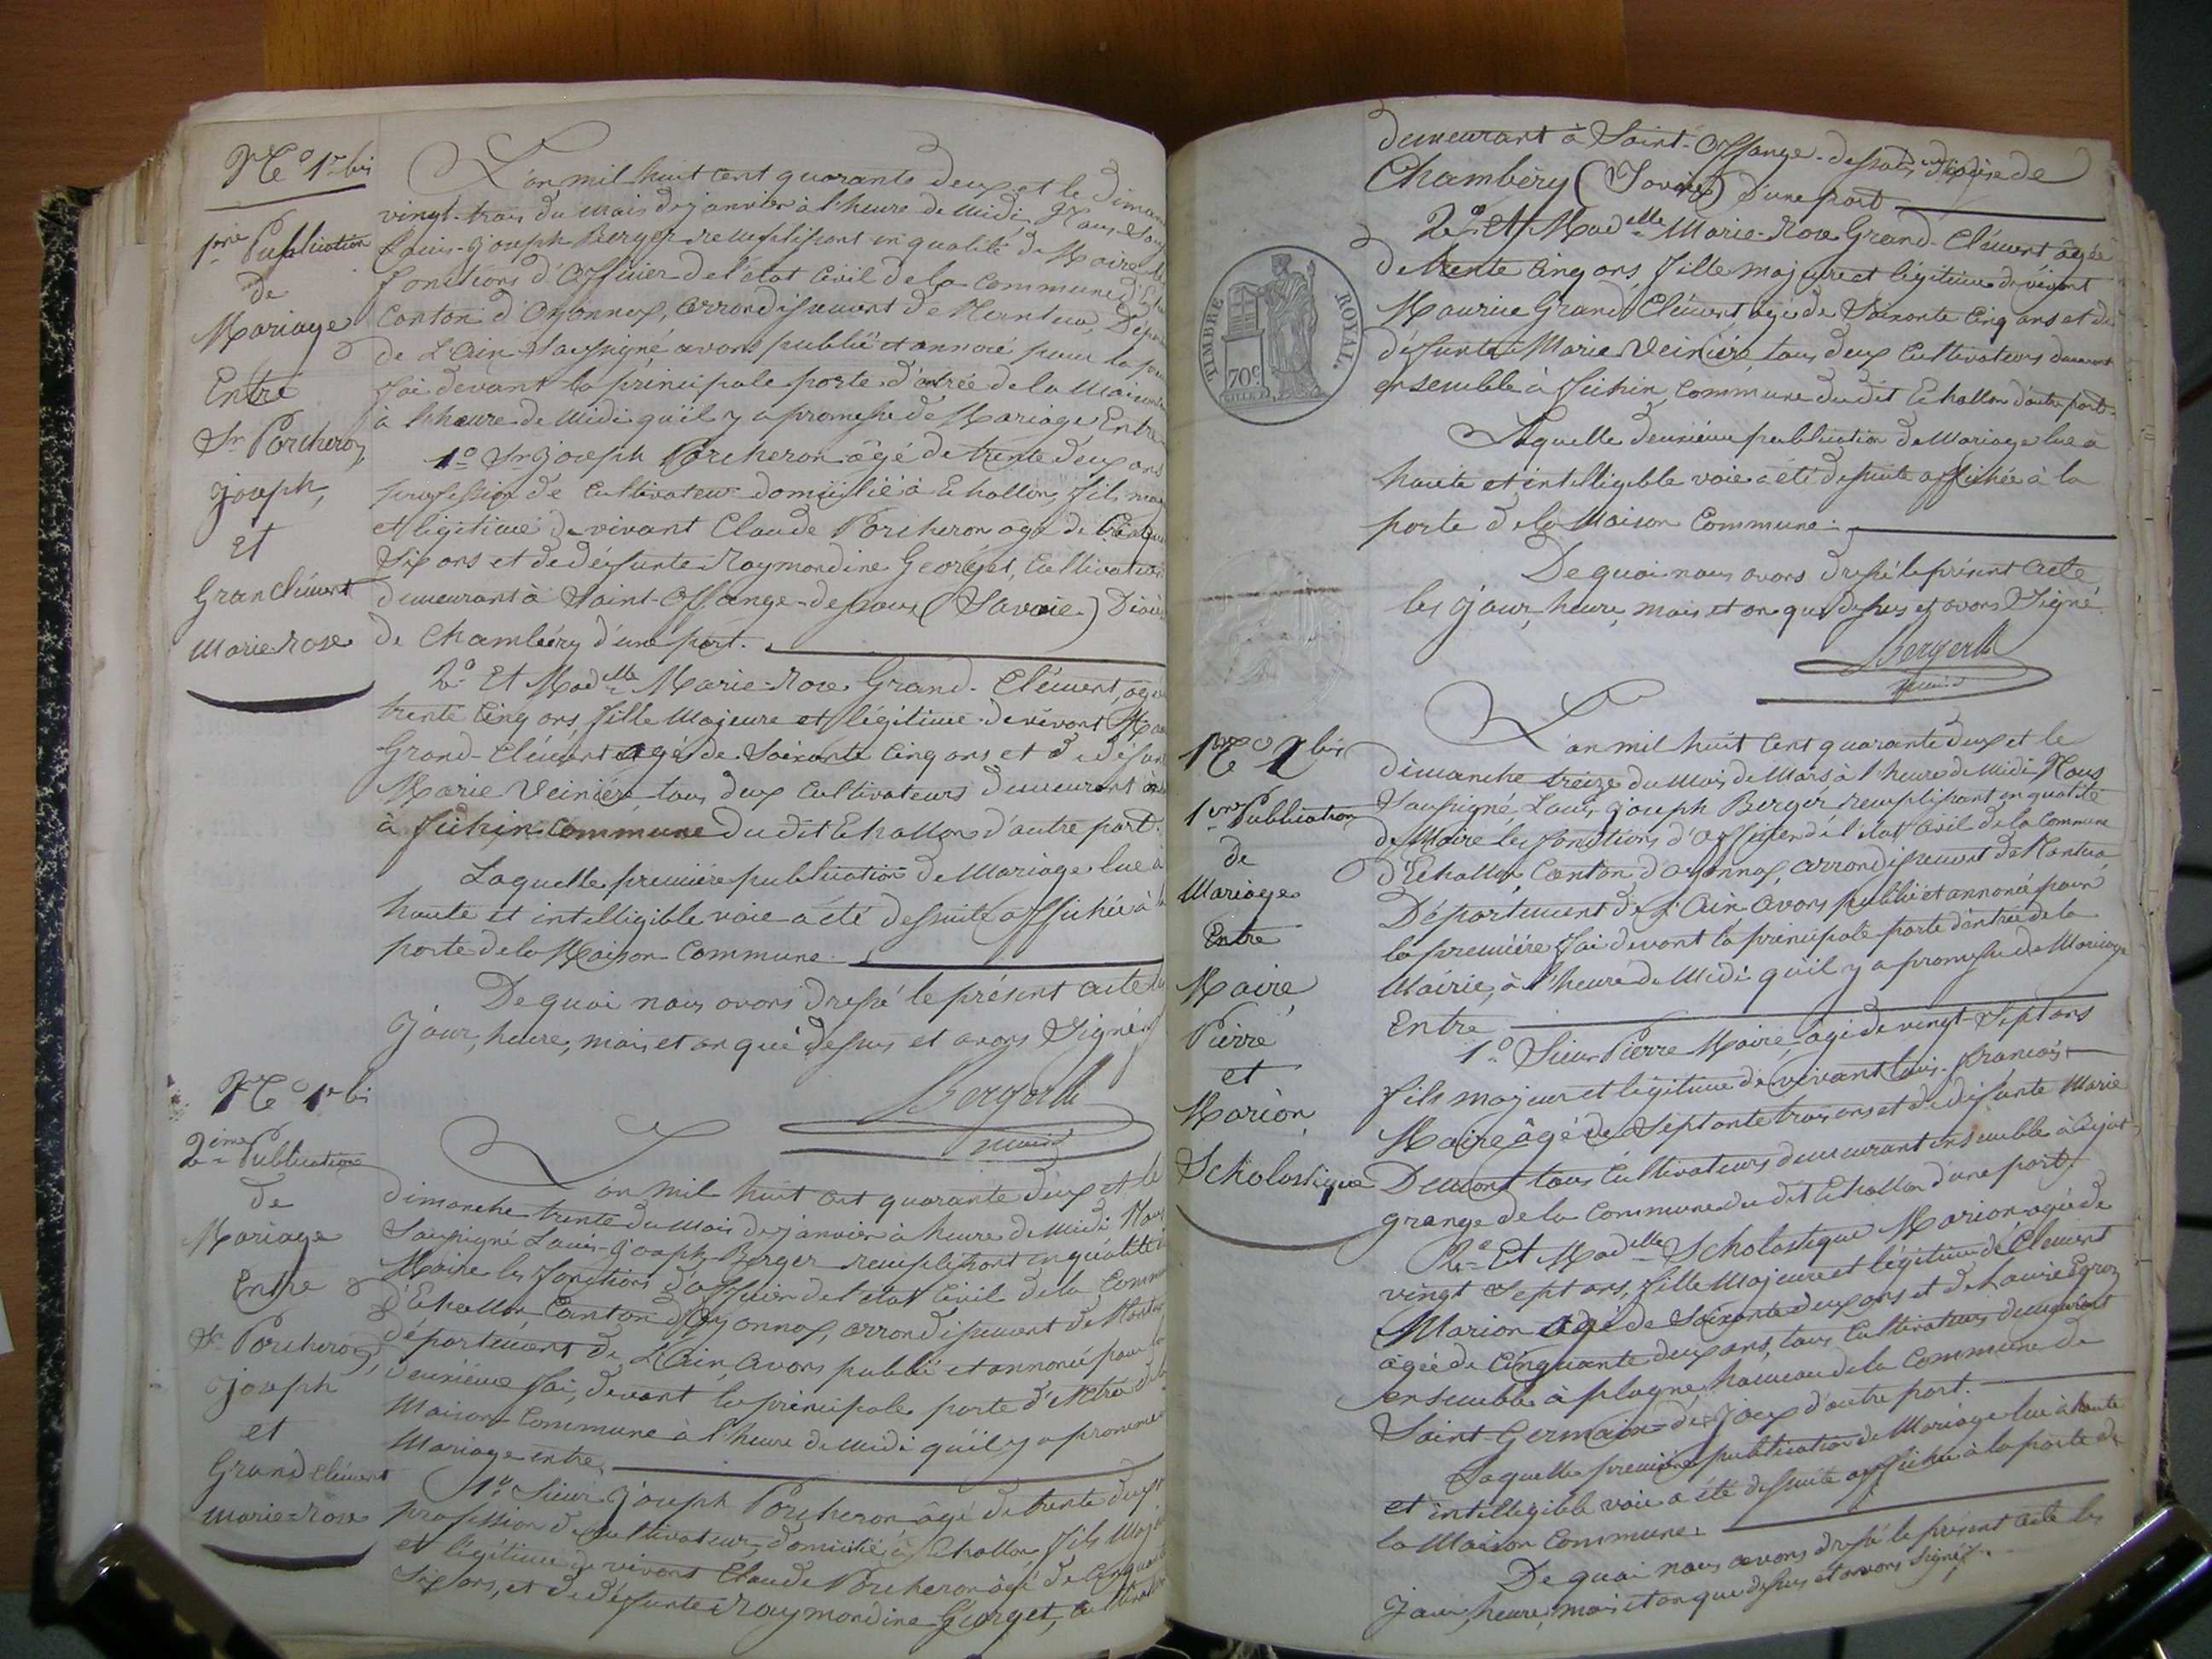 N.º 1er bis
1ère Publication
de
Mariage
Entre
Sr. Porcheron,
Joseph,
et
Granclément
Marie-Rose
L'an mil huit cent quarante deux et le diman
vingt-trois du mois de janvier à l'heure de midi, Nous
Louis-Joseph Berger remplissant en qualité de Maire
fonctions d'officier de l'état civil de la commune
Canton d'Oyonnax, arrondissement de Nantua, Dépar
de L'Ain, soussigné avons publié et annoncé pour la
foi devant la principale porte d'entrée de la Mairie
à l'heure de midi qu'il y a promesse de Mariage Entre
1º Sr. Joseph Porcheron âgé de trente deux ans
profession de cultivateur domicilié à Echallon, fils
et légitime de vivant Claude Porcheron âgé de
Six ans et de défunte Raymondine Georget, Cultivateur
demeurant à Saint-Offange-dessous (Savoie) Diocè
de Chambéry d'une part.
2º Et Madelle Marie-Rose Grand-Clément, âgé
trente cinq ans, fille Majeure et légitime de vivant
Grand-Clément âgé de Soixante cinq ans et de défun
Marie Veinière, tous deux Cultivateurs demeurant
à fichin commune du dit Echallon d'autre part.
Laquelle première publication de Mariage lue à
haute et intelligible voie a été dessuite affichée à
porte de la Maison Commune.
De quoi nous avons dressé le présent acte
Jour, heure, mois et an que dessus et avons Signé
Berger
maire
N.º 1er bi
2ème Publication
de
Mariage
Entre
Sr Porcheron,
Joseph
et
Grand Clément
Marie=Rose
L'an mil huit cent quarante deux et le
dimanche trente du mois de janvier à heure de midi Nous
Soussigné Louis-Joseph Berger remplissant en qualité
Maire les fonctions d'officier de l'état Civil de la Comm
d'Echallon, Canton d'Oyonnax, arrondissement de
département de L'Ain, avons publié et annoncé pour
deuxième foi, devant la principale porte d'entrée
Maison Commune à l'heure de midi qu'il y a
Mariage entre,
1º Sieur Joseph Porcheron, âgé de trente deux
profession de cultivateur, domicilié à Echallon fils
et légitime de vivant Claude Porcheron âgé de Cinquante
Six ans, et de défunte Raymondine Georget,
demeurant à Saint-Offange-dessous, diocèse de
Chambéry (Savoie) d'une part
2º Et Madelle Marie-Rose Grand-Clément âgée
de trente cinq ans, fille majeure et légitime de vivant
Maurice Grand Clément âgé de Soixante Cinq ans et de
défunte Marie Veinière, tous deux Cultivateurs demeurant
ensemble à fichin, commune du dit Echallon d'autre part.
Laquelle deuxième publication de Mariage lue à
haute et intelligible voie a été dessuite affichée à la
porte de la Maison Commune.
De quoi nous avons dressé le présent acte
les jour, heure, mois et an que dessus et avons Signé.
Berger
TIMBRE ROYAL.
70c
N.º 2 bis
1ère Publication
de
Mariage
Entre
Maire,
Pierre
et
Marion,
Scholastique
L'an mil huit cent quarante deux et le
dimanche treize du Mois de Mars à l'heure de Midi, Nous
Soussigné Louis Joseph Berger remplissant en qualité
de Maire les fonctions d'officier de l'état Civil de la Commune
d'Echallon, Canton d'Oyonnax, arrondissement de Nantua,
Département de L'Ain avons publié et annoncé pour
la première foi devant la principale porte d'entrée de la
Mairie, à l'heure de Midi qu'il y a promesse de Mariage
Entre
1º Sieur Pierre Maire, âgé de vingt-Sept ans
fils majeur et légitime de vivant Louis-françois
Maire âgé de Septante trois ans et de défunte Marie
Demont tous Cultivateurs demeurant ensemble à
grange de la Commune du dit Echallon d'une part.
2º Et Madelle Scholastique Marion âgée de
vingt Sept ans, fille Majeure et légitime de Clément
Marion âgé de Soixante deux ans et de Laurie
âgée de Cinquante deux ans, tous Cultivateurs demeurant
ensemble à plagne, hameau de la Commune de
Saint-Germain-de-Joux d'autre part.
Laquelle première publication de Mariage lue à haute
et intelligible voie a été dessuite affichée à la porte de
la Maison Commune.
De quoi nous avons dressé le présent acte les
jour, heure, mois et an que dessus et avons Signé.